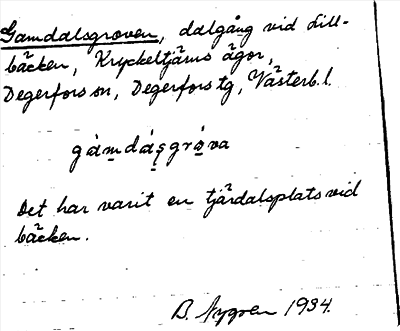 Gamdalsgroven, dalgång vid Lill-
bäcken, Kryckeltjärns ägor,
Degerfors sn, Degerfors tg, Västerb.l.
gàmdáṣgrọva
Det har varit en tjärdalsplats vid
bäcken.
B. Nygren 1934.